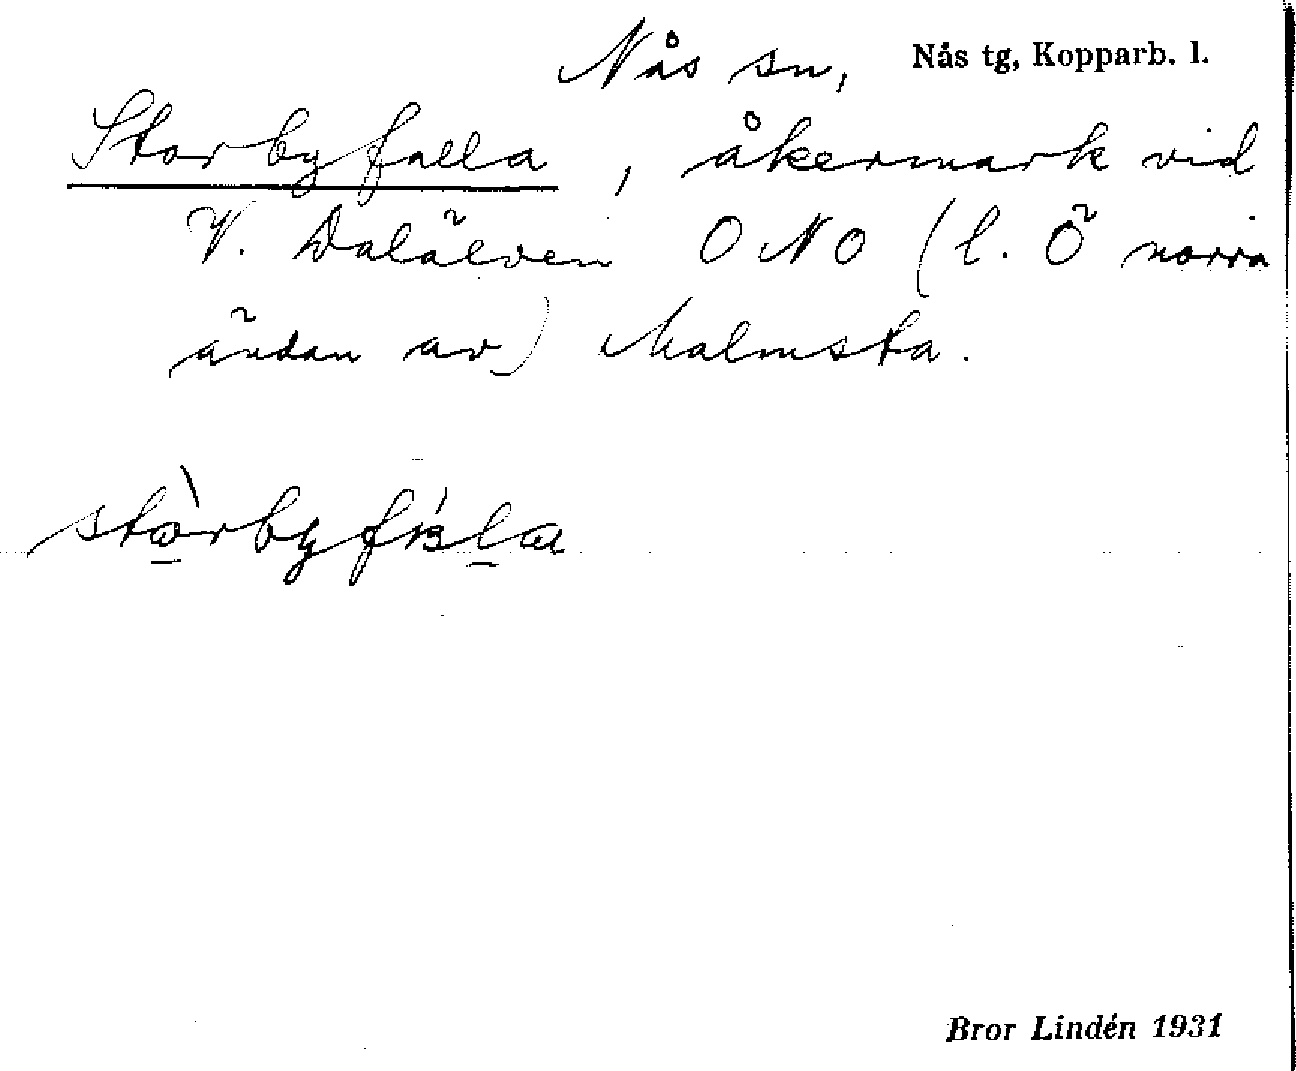 Nås sn, Nås tg, Kopparb. l.
Storbyfalla, åkermark vid
V. Dalälven ONO (l. Ö norra
ändan av) Malmsta.
Bror Lindén 1931